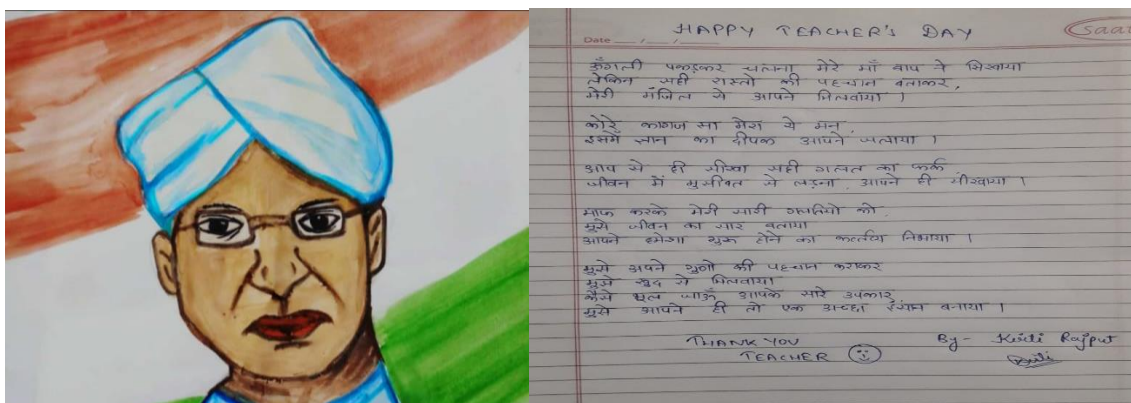 HAPPY TEACHER'S DAY
Date
saar
उँगली पकड़कर चलना मेरे माँ बाप ने सिखाया
लेकिन सही रास्तो की पहचान बताकर,
मेरी मंजिल से आपने मिलवाया ।
कोरे कागज सा मेरा ये मन,
इसमें ज्ञान का दीपक आपने जलाया ।
आप से ही सीखा सही गलत का फर्क
जीवन में मुसीबत से लड़ना, आपने ही सीखाया ।
माफ करके मेरी सारी गलतियो को
मुझे जीवन का सार बताया
आपने हमेशा गुरू होने का कर्तव्य निभाया ।
मुझे अपने गुणो की पहचान कराकर
मुझे खुद से मिलवाया
कैसे भूल जाऊँ आपके सारे उपकार,
मुझे आपने ही तो एक अच्छा इंसान बनाया ।
THANK YOU
TEACHER
By - Rajput